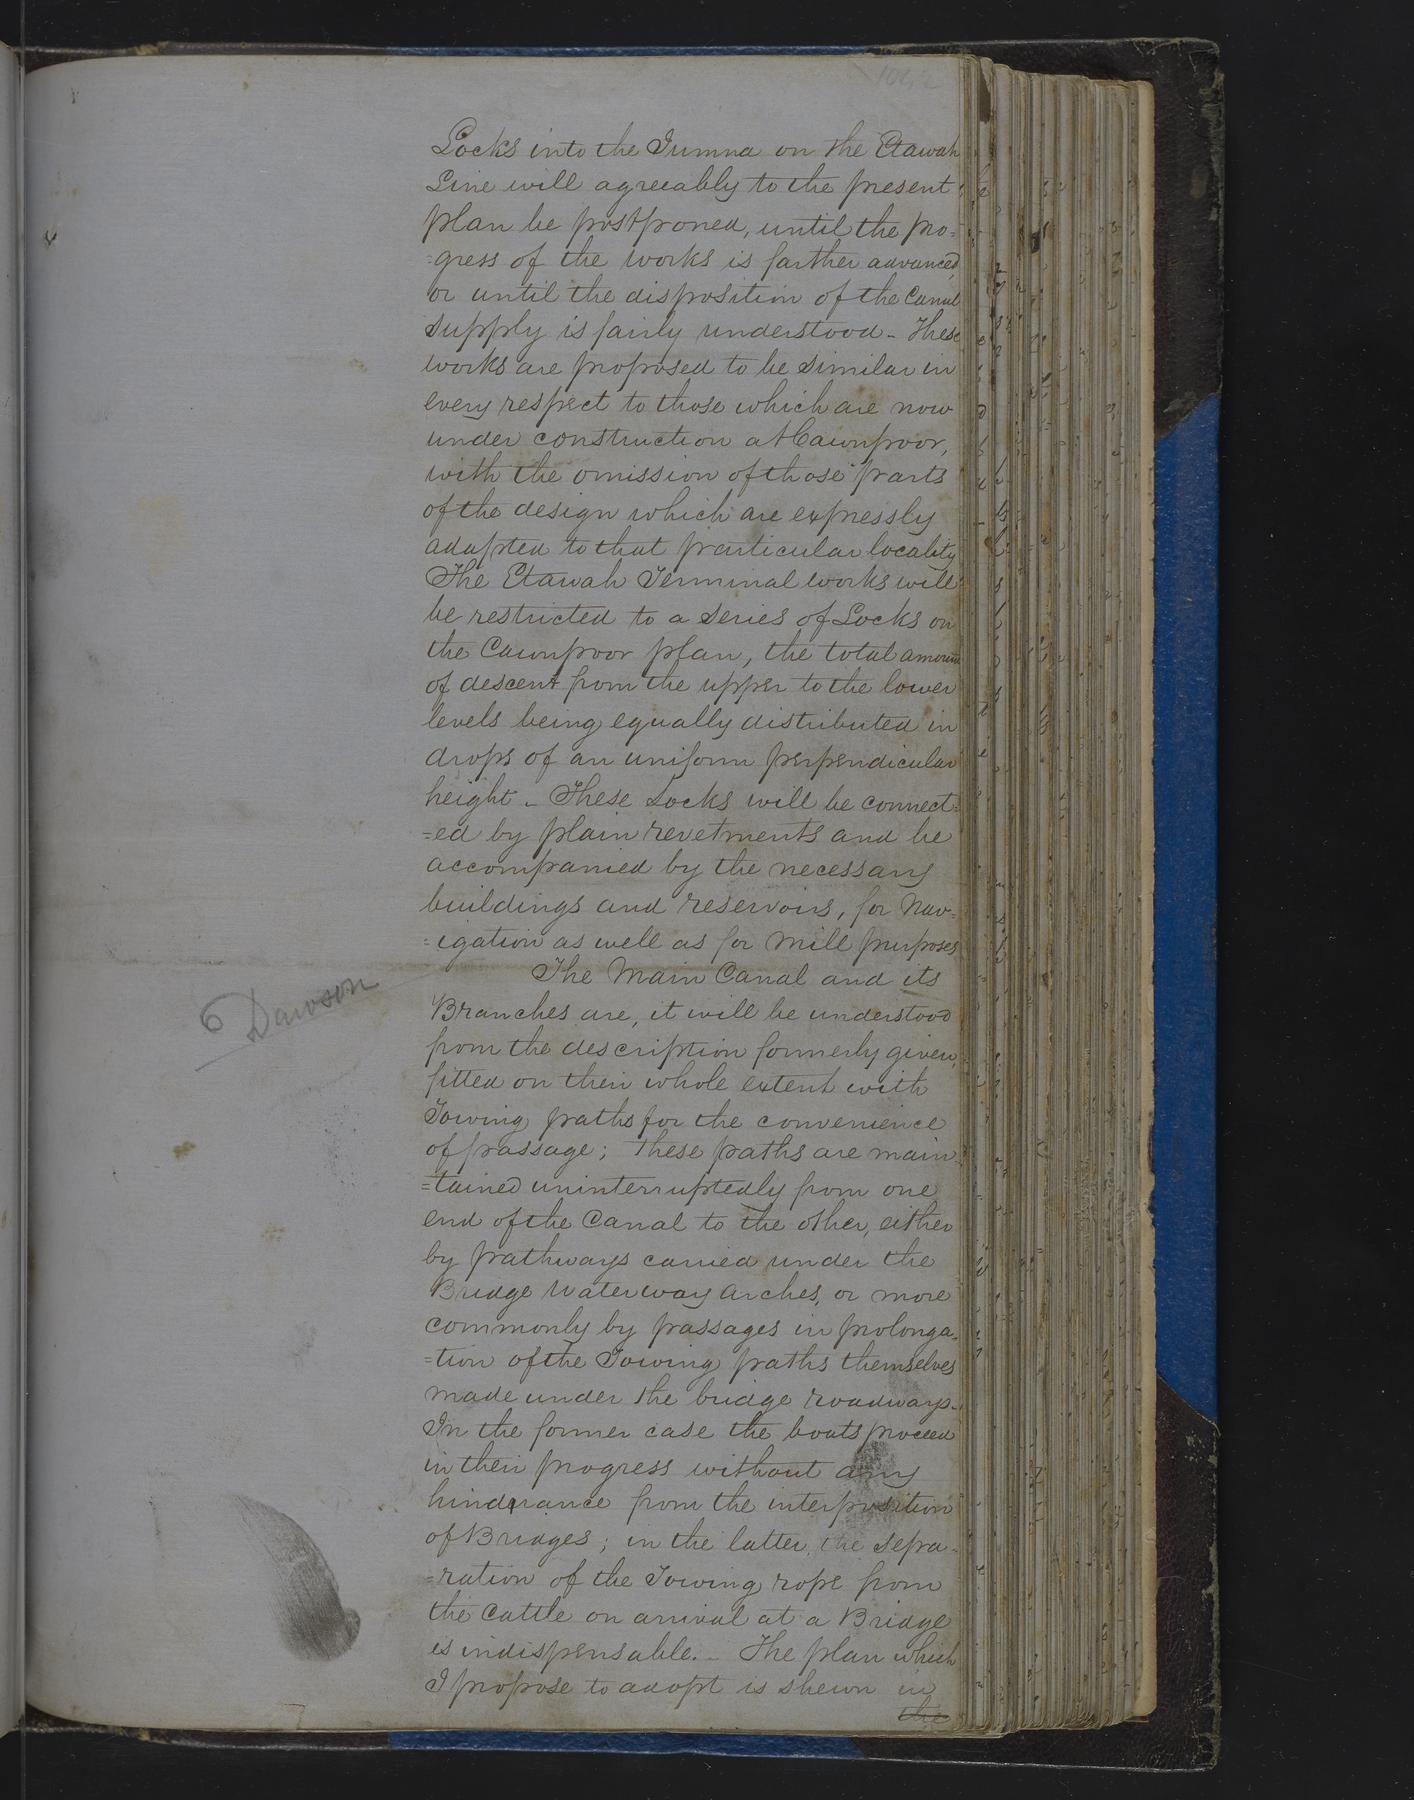 1062
Locks into the Jumna on the Etawah
Line will agreeably to the present
plan be postponed, until the pro=
=gress of the works is farther advanced,
or until the disposition of the Canal
supply is fairly understood - These
works are proposed to be similar in
every respect to those which are now
under construction at Cawnpoor,
with the omission of those parts
of the design which are expressly
adapted to that particular locality
The Etawah Terminal works will
be restricted to a series of Locks on
the Cawnpoor plan, the total amount
of descent from the upper to the lower
levels being equally distributed in
drops of an uniform perpendicular
height - These Locks will be connect=
=ed by plain revetments and be
accompanied by the necessary
buildings and reservoirs, for Nav=
=igation as well as for Mill purposes
The Main Canal and its
6 Dawson
Branches are, it will be understood
from the description formerly given,
fitted on their whole extent with
Towing paths for the convenience
of passage; These paths are main=
=tained uninterruptedly from one
end of the Canal to the other, either
by pathways carried under the
Bridge Waterway Arches, or more
commonly by passages in prolonga=
=tion of the Towing paths themselves
made under the bridge roadways.
In the former case the boats proceed
in their progress without any
hindrance from the interposition
of Bridges; in the latter, the sepa=
=ration of the Towing rope from
the Cattle on arrival at a Bridge
is indispensable. - The plan which
I propose to adopt is shewn in
the